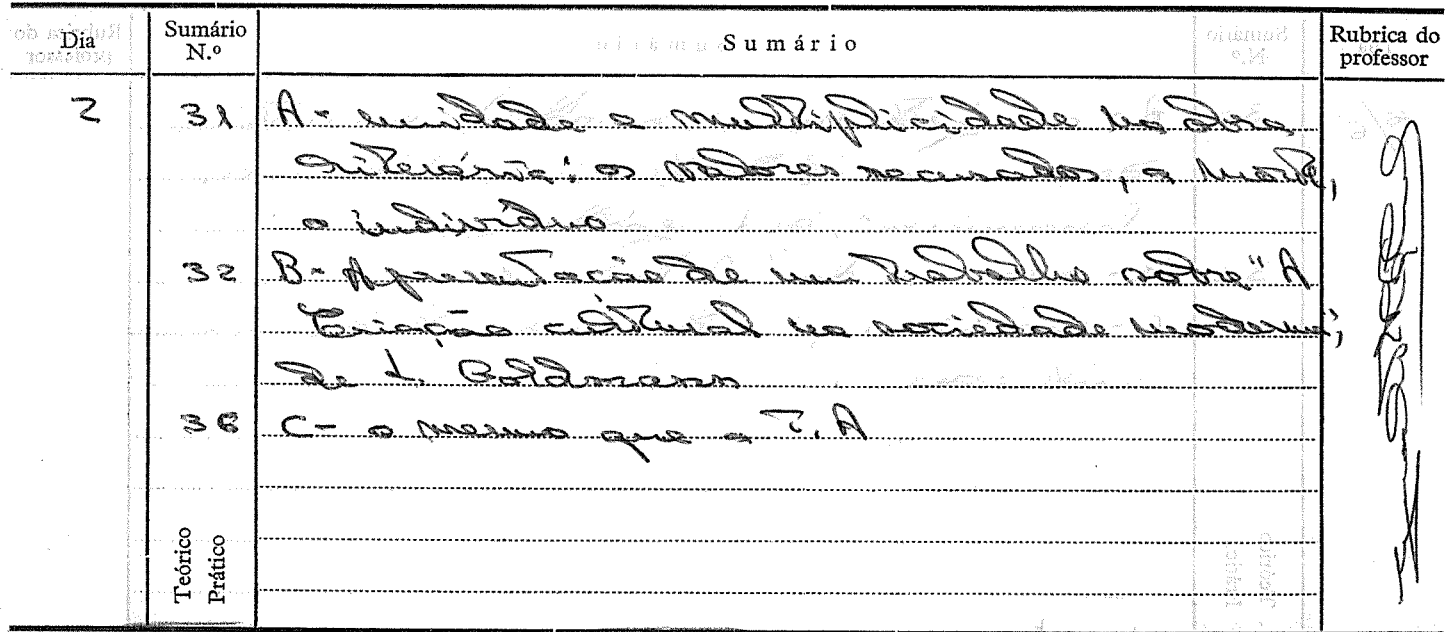 Dia Sumário N.º Sumário Rubrica do professor
2 31 A - unidade e multiplicidade na obra
literária: os valores recusados, a morte,
o indivíduo
32 B - Apresentação de um trabalho sobre "A
Criação cultural na sociedade moderna",
de L. Goldmann
36 C - o mesmo que a T. A
Teórico
Prático